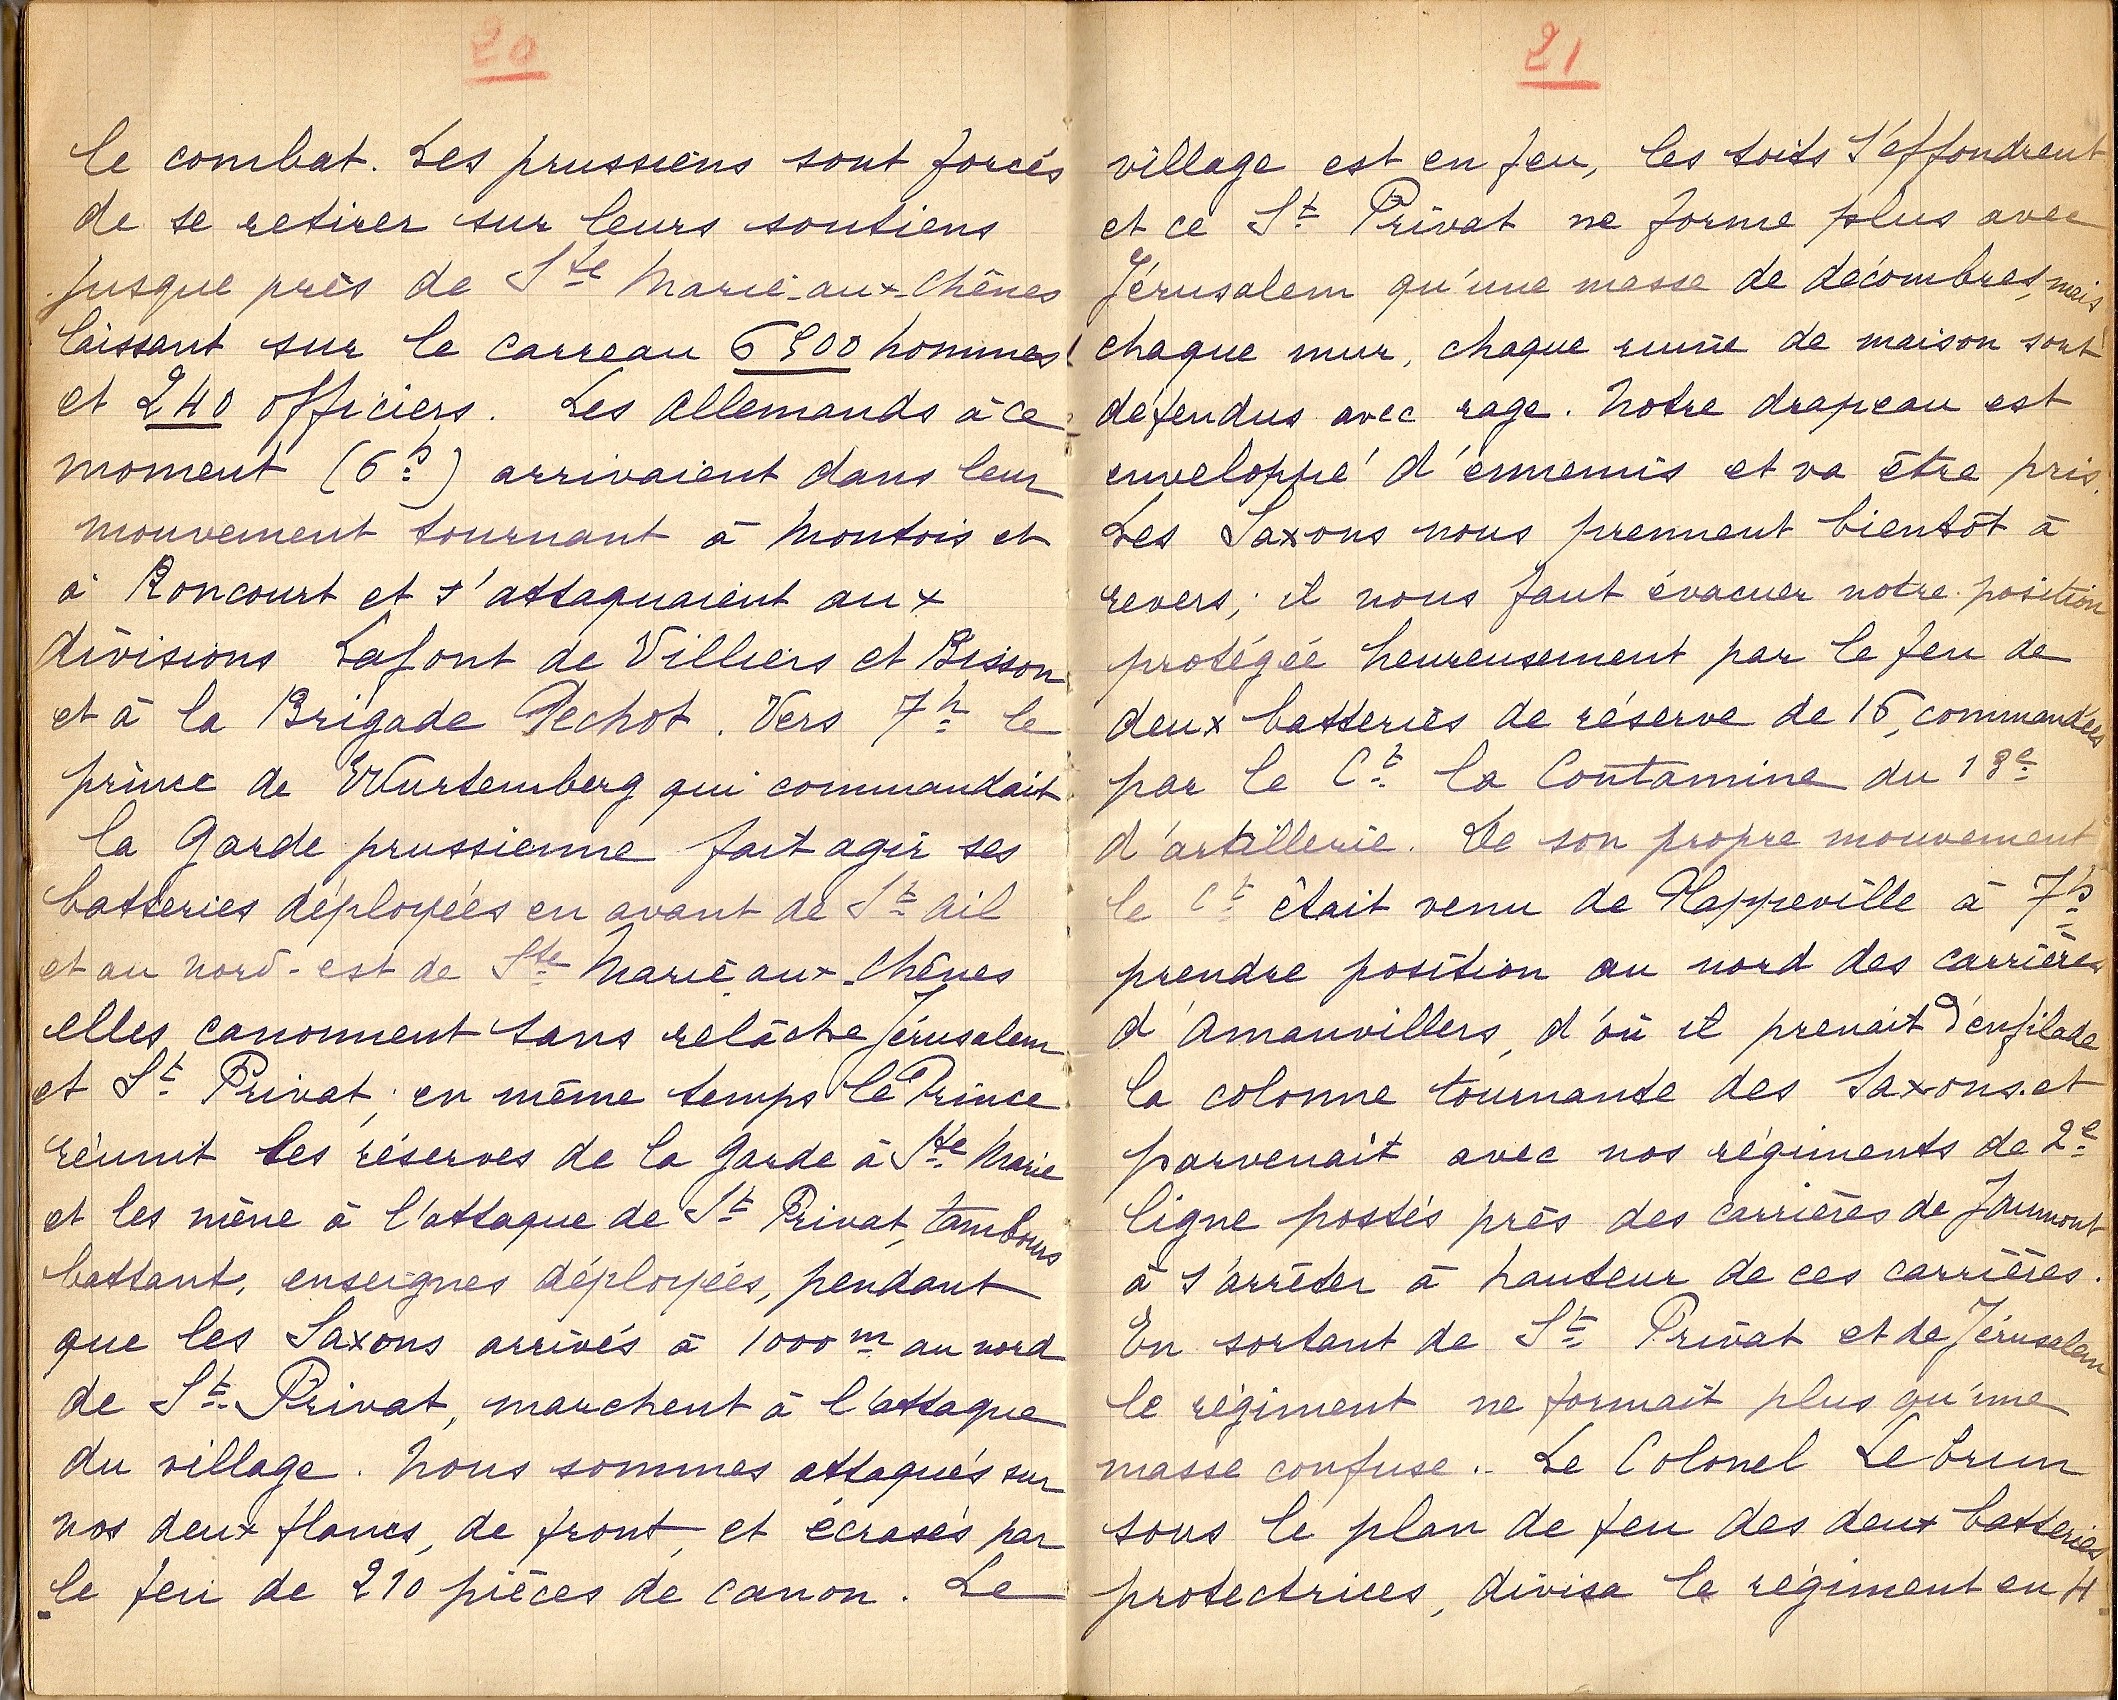 20
le combat. Les prussiens sont forcés
de se retirer sur leurs soutiens
jusque près de Ste Marie-aux-Chênes
laissant sur le carreau 6500 hommes
et 240 officiers. Les allemands à ce
moment (6h) arrivaient dans leur
mouvement tournant à Montois et
à Roncourt et s'attaquaient aux
divisions Lafont de Villiers et Bisson
et à la Brigade Pechot. Vers 7h le
prince de Wurtemberg qui commandait
la garde prussienne fait agir ses
batteries déployées en avant de St Ail
et au nord-est de Ste Marie aux-Chênes
elles canonnent sans relâche Jérusalem
et St Privat; en même temps le Prince
réunit les réserves de la garde à Ste Marie
et les mène à l'attaque de St Privat, tambours
battant, enseignes déployées, pendant
que les Saxons arrivés à 1000m au nord
de St Privat, marchent à l'attaque
du village. Nous sommes attaqués sur
nos deux flancs, de front, et écrasés par
le feu de 210 pièces de canon. Le
21
village est en feu, les toits s'effondrent
et ce St Privat ne forme plus avec
Jérusalem qu'une masse de décombres, mais
chaque mur, chaque ruine de maison sont
défendus avec rage. Notre drapeau est
enveloppé d'ennemis et va être pris.
Les Saxons nous prennent bientôt à
revers; il nous faut évacuer notre position
protégée heureusement par le feu de
deux batteries de réserve de 16, commandées
par le Ct la Contamine du 18e
d'artillerie. De son propre mouvement
le Ct était venu de Plappeville à 7h
prendre position au nord des carrières
d'Amanvillers, d'où il prenait d'enfilade
la colonne tournante des Saxons et
parvenait avec nos régiments de 2e
ligne postés près des carrières de Jaumont
à s'arrêter à hauteur de ces carrières.
En sortant de St Privat et de Jérusalem
le régiment ne formait plus qu'une
masse confuse. Le Colonel Lebrun
sous le plan de feu des deux batteries
protectrices, divisa le régiment en 4